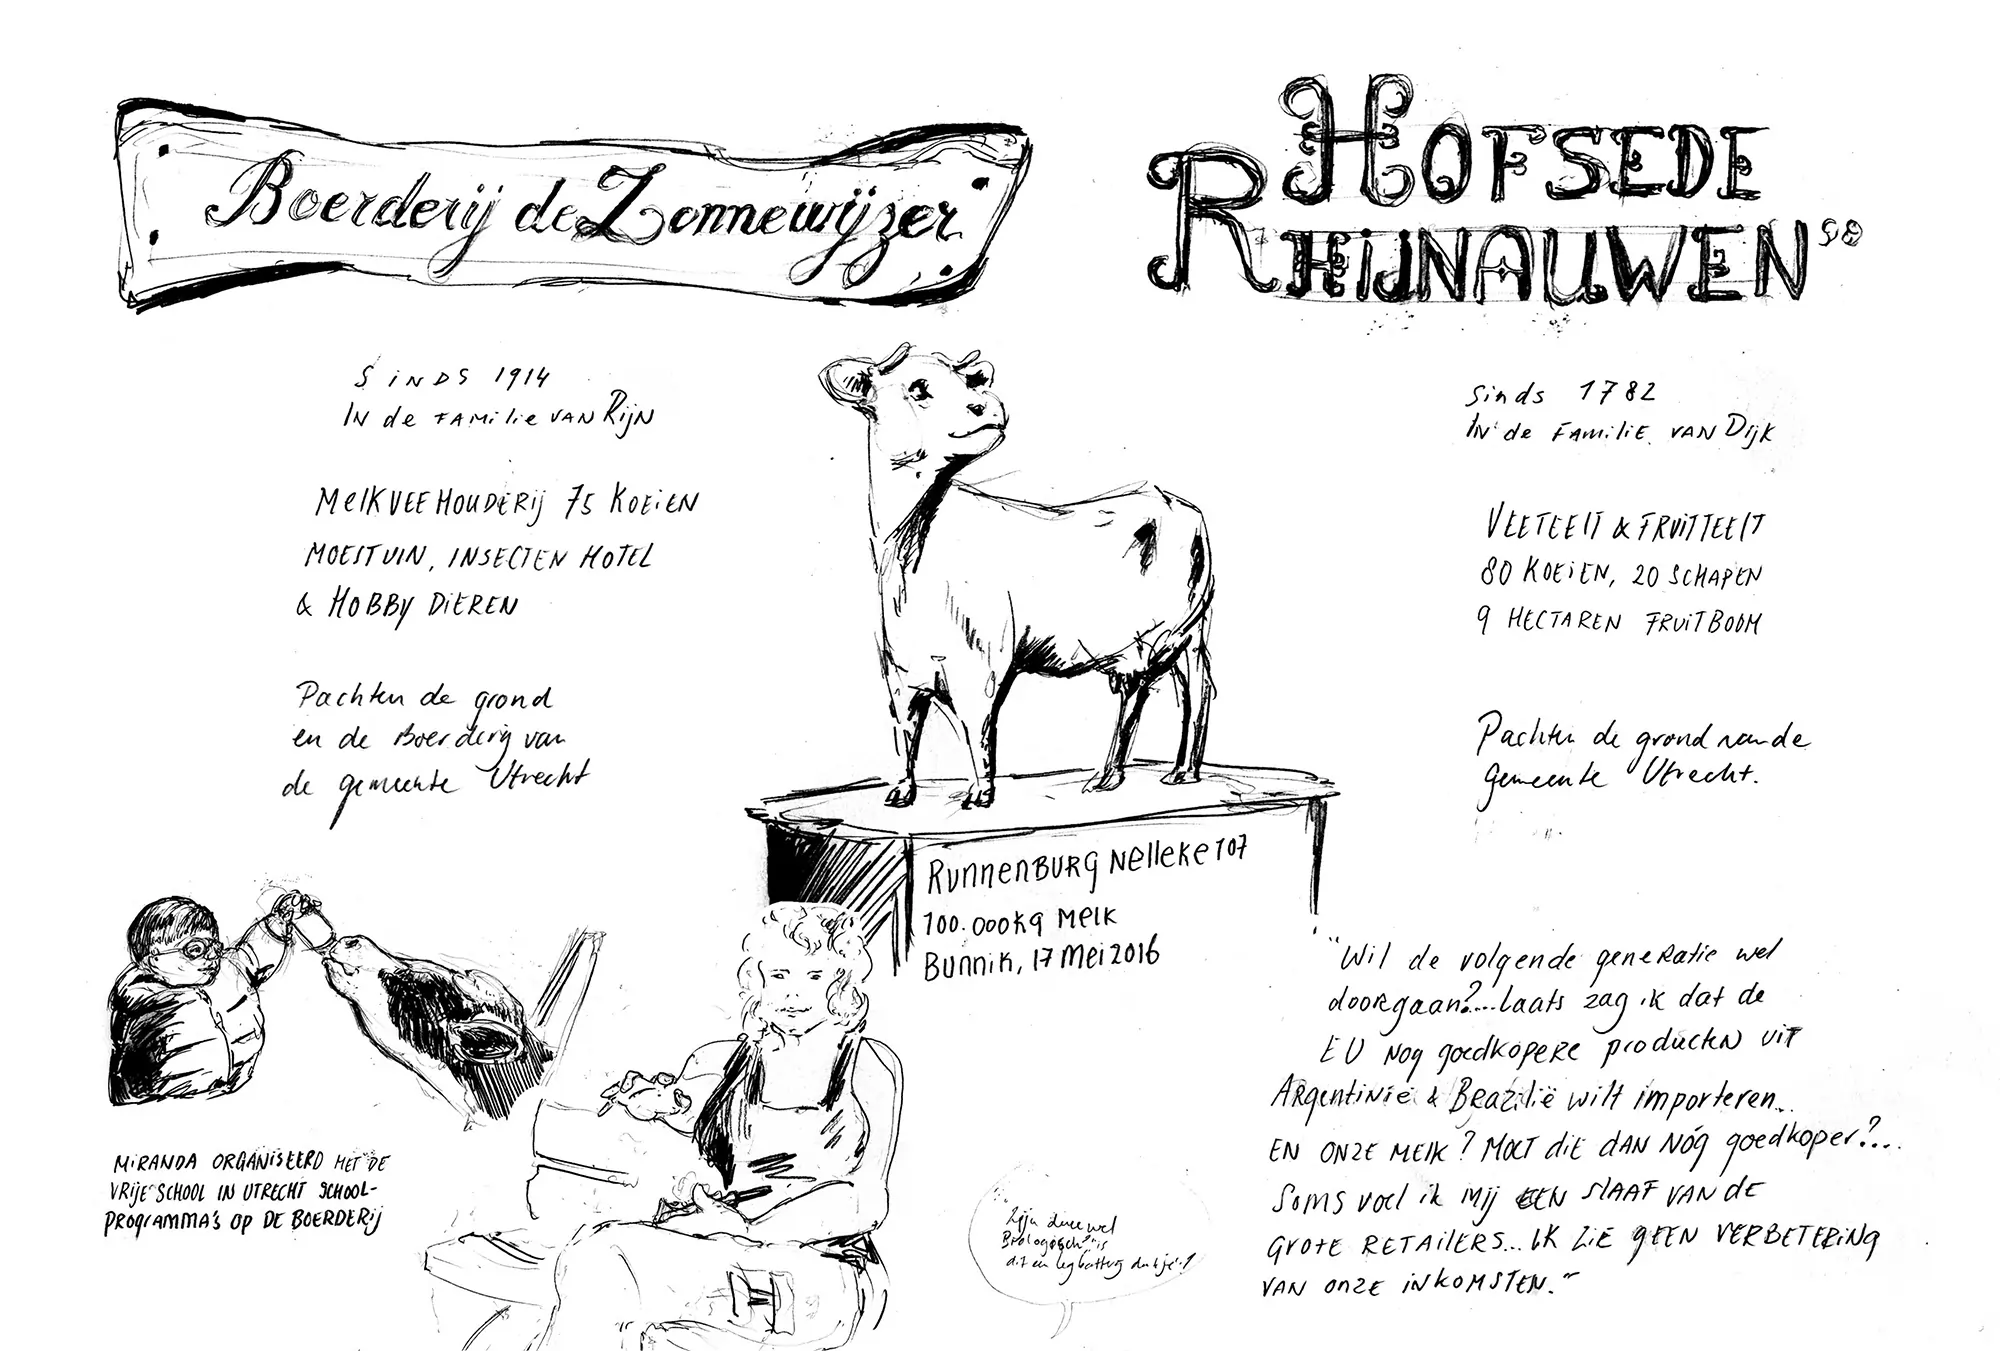 Boerderij de Zonnewijzer
Sinds 1914
In de familie van Rijn
Melkveehouderij 75 koeien
moestuin, insecten hotel
& hobby dieren
Pachten de grond
en de Boerderij van
de gemeente Utrecht
Miranda organiseerd met de
Vrije School in Utrecht school-
programma's op de Boerderij
Runnenburg Nelleke 107
100.000kg melk
Bunnik, 17 mei 2016
Zijn deze wel
Biologisch? is
dit een legbatterij
HOFSEDE
RHIJNAUWEN
Sinds 1782
In de familie van Dijk
Veeteelt & Fruitteelt
80 koeien, 20 schapen
9 hectaren fruitboom
Pachten de grond van de
gemeente Utrecht.
"Wil de volgende generatie wel
doorgaan?....laats zag ik dat de
EU nog goedkopere producten uit
Argentinië & Brazilië wilt importeren...
en onze melk? Moet die dan nóg goedkoper?...
Soms voel ik mij een slaaf van de
grote retailers... Ik zie geen verbetering
van onze inkomsten."